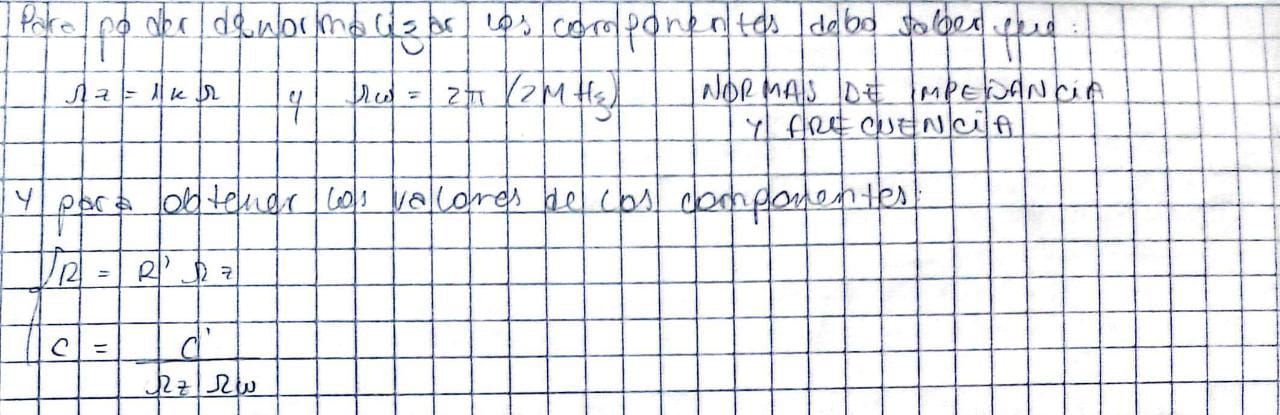 Para poder denormalizar los componentes debo saber que:
Ωz = 1KΩ y Ωω = 2π (2MHz) NORMAS DE IMPEDANCIA
Y FRECUENCIA
Y para obtener los valores de los componentes:
R = R' Ωz
C = C' / Ωz Ωω